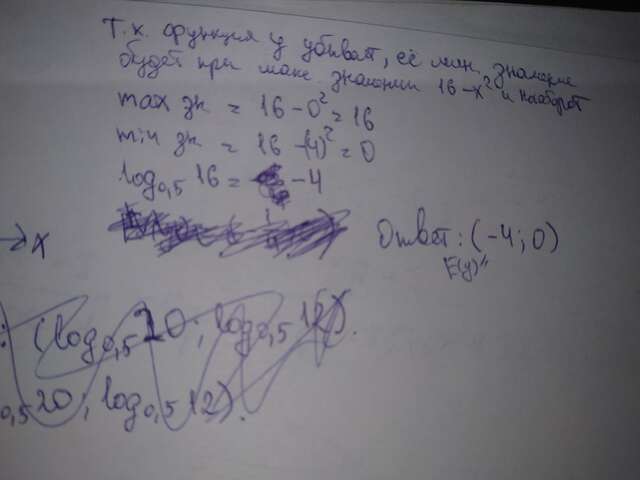 Т.к. функция y убывает, её мин. значение
будет при макс. значении 16-x² и наоборот
max зн = 16-0² = 16
min зн = 16-(4)² = 0
log₀,₅ 16 = -4
x
Ответ: (-4; 0)
E(y)
: (log₀,₅20; log₀,₅12).
₀,₅20; log₀,₅12).